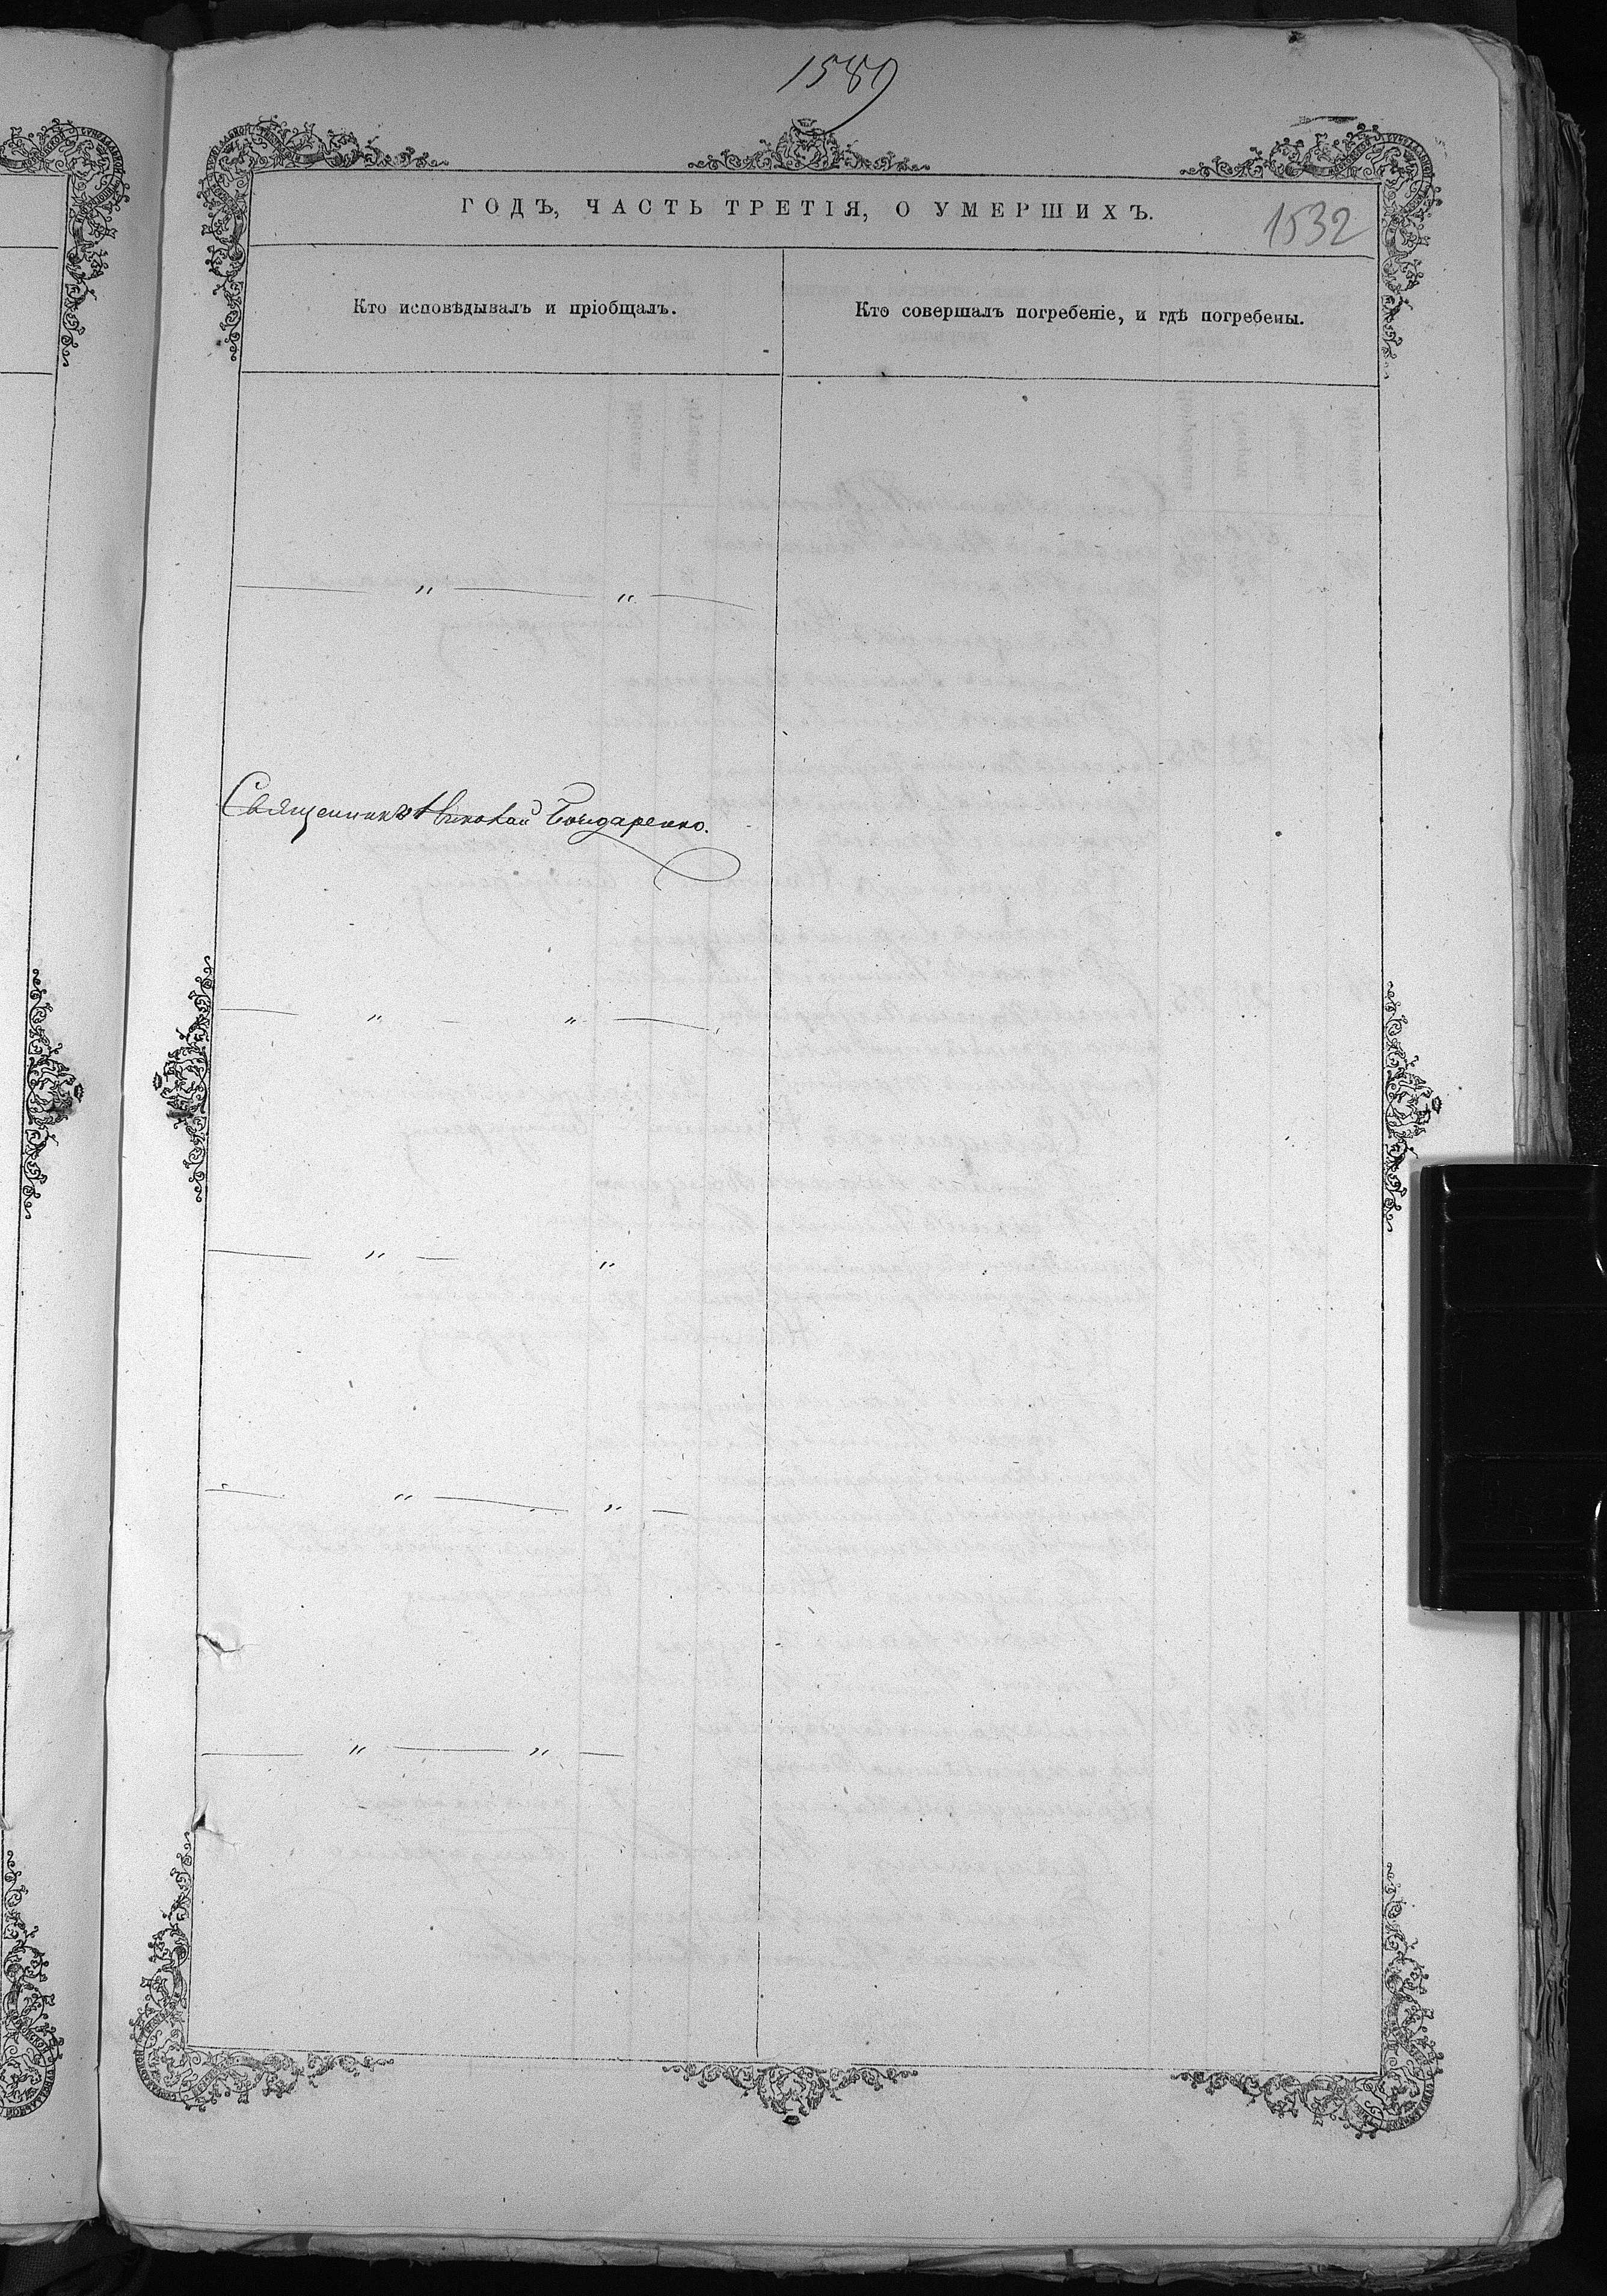 1589
ГОДЪ, ЧАСТЬ ТРЕТІЯ, О УМЕРШИХЪ.
1532
Кто исповѣдывалъ и пріобщалъ.
Кто совершалъ погребеніе, и гдѣ погребены.
— „ — „ —
Священникъ Николай Бондаренко.
— „ — „ —
— „ — „
— „ — „ —
— „ — „ —